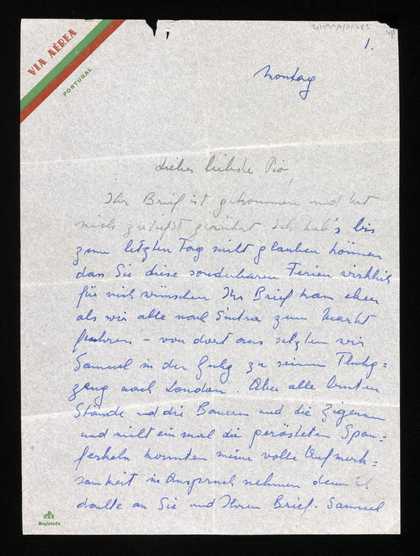 VIA AÉREA
PORTUGAL
1.
Montag
Lieber liebster Pio,
Ihr Brief ist gekommen und hat
mich zutiefst gerührt. Ich hab's bis
zum letzten Tag nicht glauben können
das Sie diese sonderbaren Ferien wirklich
für mich wünschen. Ihr Brief kam eben
als wir alle nach Sintra zum Markt
fuhren – von dort aus setzten wir
Samuel in der zu seinem Flug=
zeug nach London. Aber alle bunten
Stände und die Bauern und die Zigeuner
und nicht einmal die gerösteten Span=
ferkeln konnten meine volle Aufmerk=
samkeit in Anspruch nehmen denn ich
dachte an Sie und Ihren Brief. Samuel
Registada